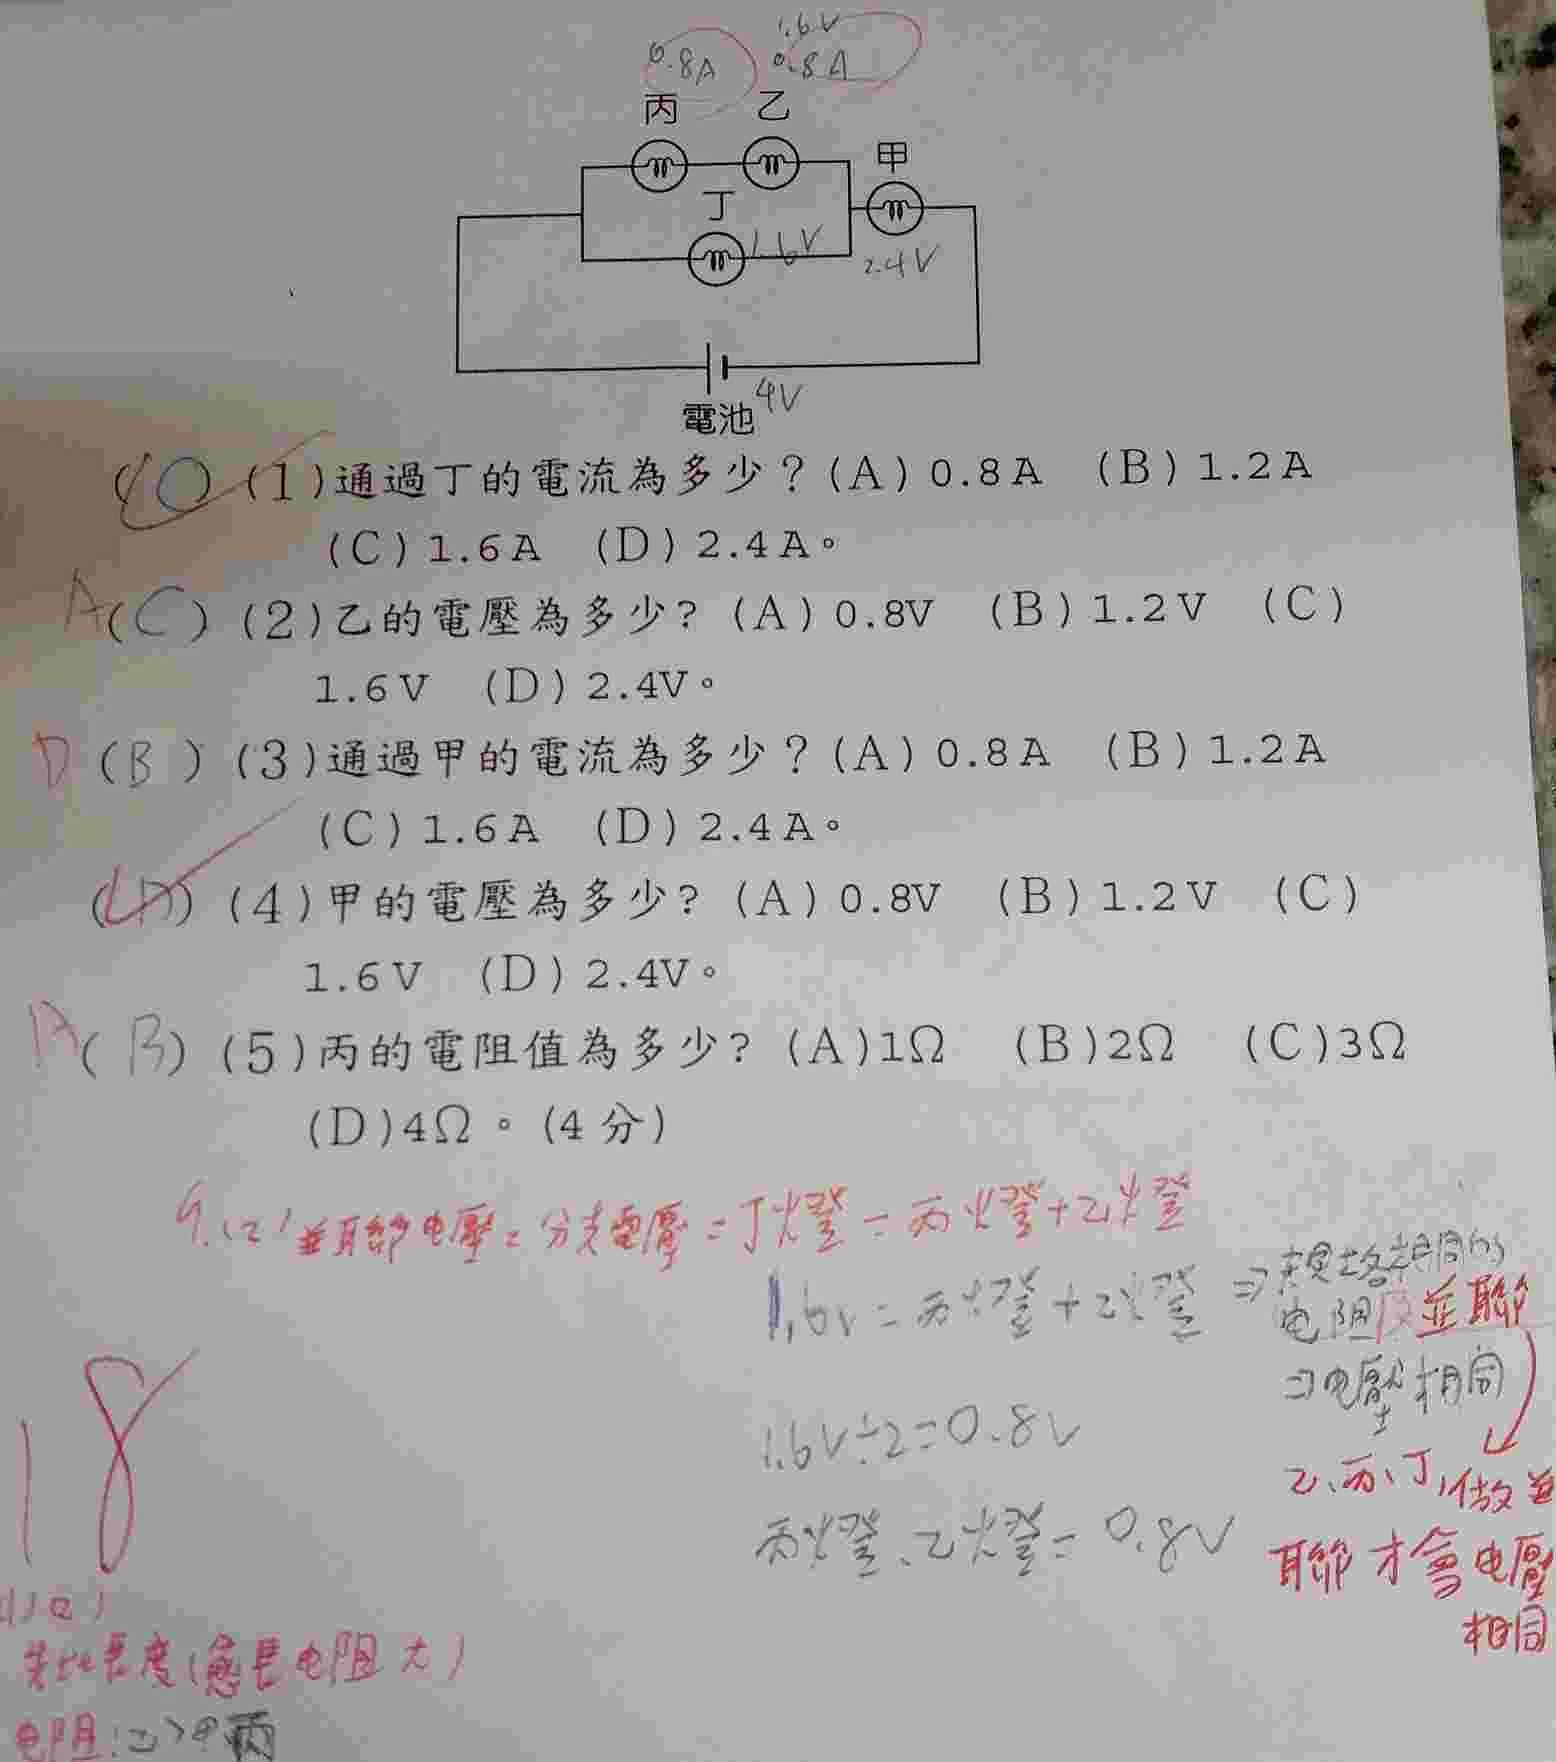 1.6V
0.8A 0.8A
丙 乙
甲
丁
1.6V
2.4V
4V
電池
(1)通過丁的電流為多少？(A)0.8A (B)1.2A
(C)1.6A (D)2.4A。
A(C) (2)乙的電壓為多少？(A)0.8V (B)1.2V (C)
1.6V (D)2.4V。
D(B) (3)通過甲的電流為多少？(A)0.8A (B)1.2A
(C)1.6A (D)2.4A。
(D) (4)甲的電壓為多少？(A)0.8V (B)1.2V (C)
1.6V (D)2.4V。
A(B) (5)丙的電阻值為多少？(A)1Ω (B)2Ω (C)3Ω
(D)4Ω。(4分)
9.(2)並聯电壓=分支電壓=丁燈=丙燈+乙燈
1.6V=丙燈+乙燈
⇒規格相同的
电阻並聯
⇒电壓相同
1.6V÷2=0.8V
乙、丙、丁,做並
聯才會电壓
相同
丙燈、乙燈=0.8V
18
長度(愈長电阻大)
电阻:乙>甲丙